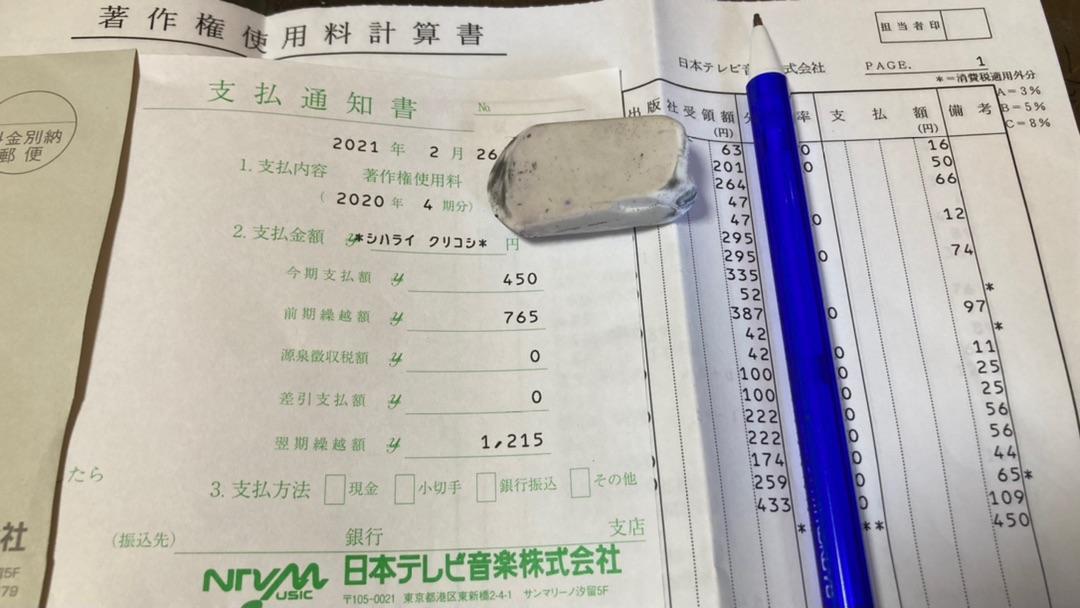 著作権使用料計算書
担当者印
日本テレビ音
式会社
PAGE. 1
*=消費税適用外分
A=3%
B=5%
C=8%
金別納
郵便
支払通知書
No
2021年 2月26
1. 支払内容 著作権使用料
(2020年 4期分)
2. 支払金額 ¥*シハライ クリコシ* 円
今期支払額 ¥ 450
前期繰越額 ¥ 765
源泉徴収税額 ¥ 0
差引支払額 ¥ 0
翌期繰越額 ¥ 1,215
3. 支払方法 現金 小切手 銀行振込 その他
(振込先) 銀行 支店
NTVM
USIC
日本テレビ音楽株式会社
〒105-0021 東京都港区東新橋2-4-1 サンマリーノ汐留5F
たら
社
5F
79
出版社受領額 率 支払額 備考
(円) (円)
63 0 16
201 0 50
264 66
47
47 0 12
295
295 0 74
335 *
52
387 0 97
42 *
42 0 11
100 0 25
100 0 25
222 0 56
222 0 56
174 0 44
259 0 65*
433 0 109
* ** 450